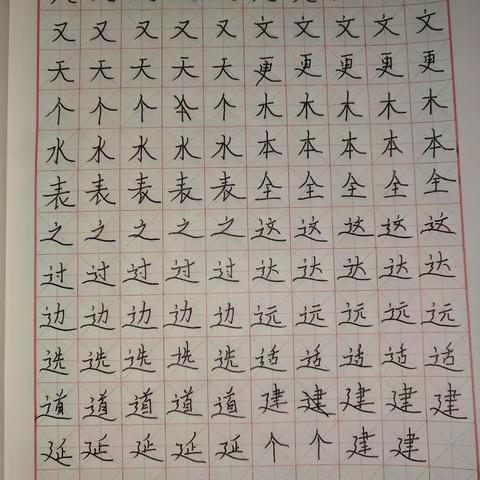 又又又又又文文文文文
天天天天天更更更更更
个个个个个木木木木木
水水水水水本本本本本
表表表表表全全全全全
之之之之之这这这这这
过过过过过达达达达达
边边边边边远远远远远
选选选选选适适适适适
道道道道道建建建建建
延延延延延个个建建